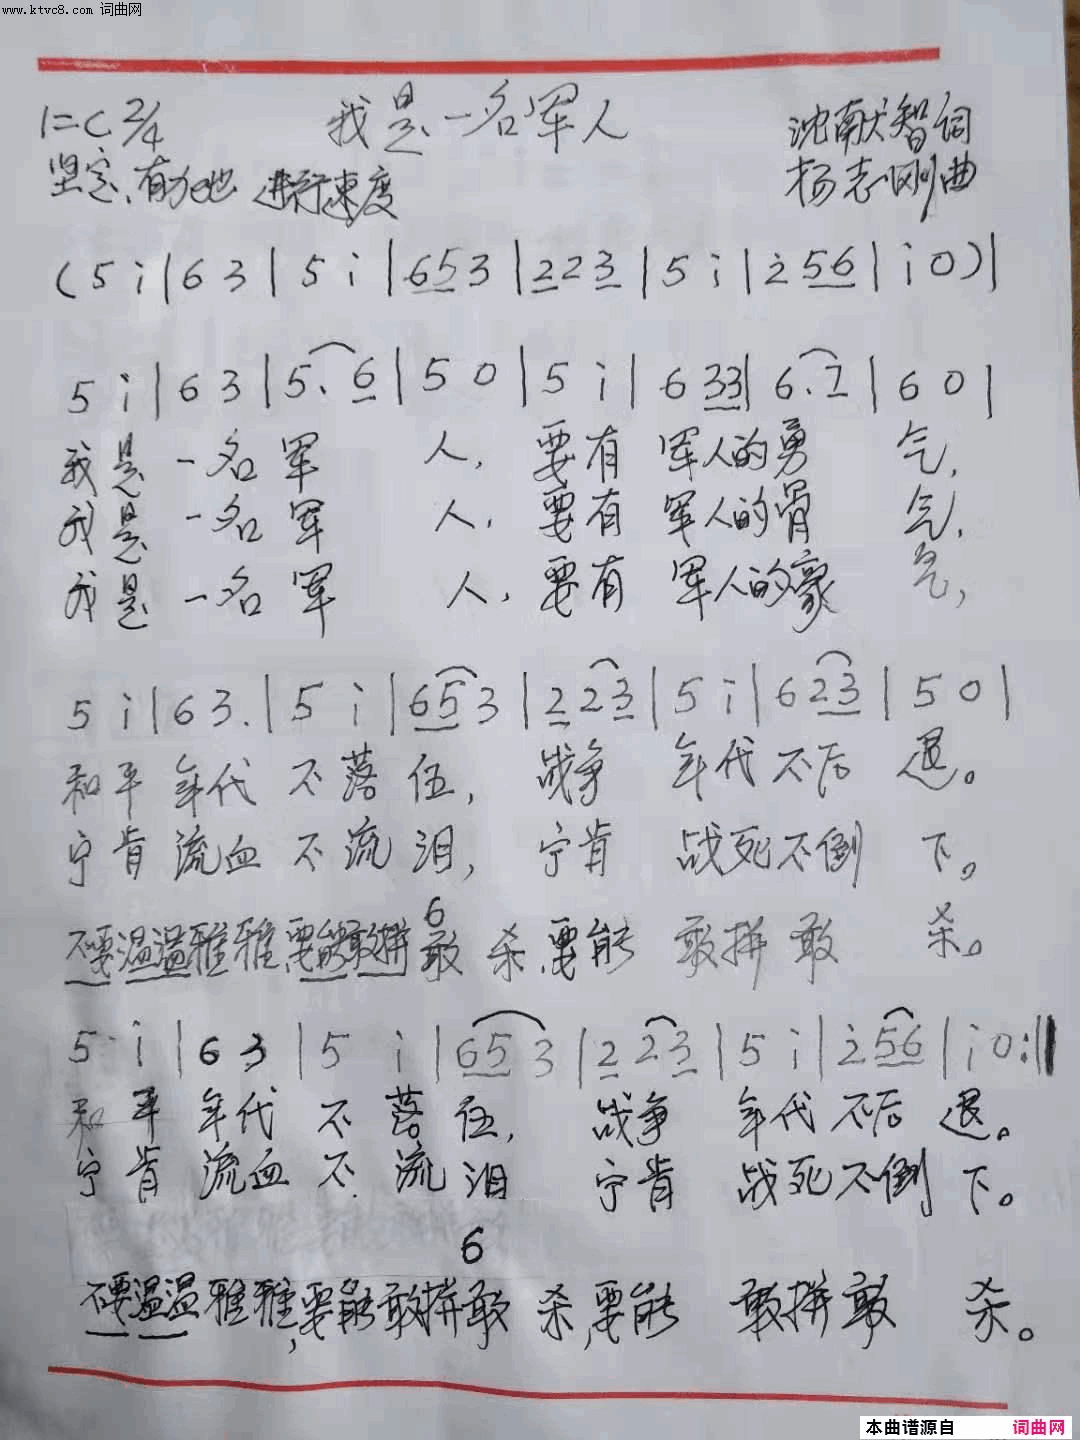 www.ktvc8.com 词曲网
1=C 2/4 我是一名军人 沈献智词
坚定、有力地 进行速度 杨志刚曲
(5 i|6 3|5 i|653|223|5 i|i 56|i 0)|
5 i|6 3|5. 6|5 0|5 i|6 33|6. 7|6 0|
我是 一名 军 人, 要有 军人的勇 气,
我是 一名 军 人, 要有 军人的骨 气,
我是 一名 军 人, 要有 军人的豪 气,
5 i|63.|5 i|653|223|5 i|623|5 0|
和平 年代 不落 伍, 战争 年代不后 退。
宁肯 流血 不流 泪, 宁肯 战死不倒 下。
6
不要温温雅雅,要能敢拼敢 杀,要能 敢拼敢 杀。
5 i|6 3|5 i|653|223|5 i|i 56|i 0:||
和平 年代 不落 伍, 战争 年代不后 退。
宁肯 流血 不流 泪 宁肯 战死不倒 下。
6
不要温温雅雅,要能敢拼敢 杀,要能 敢拼敢 杀。
本曲谱源自 词曲网